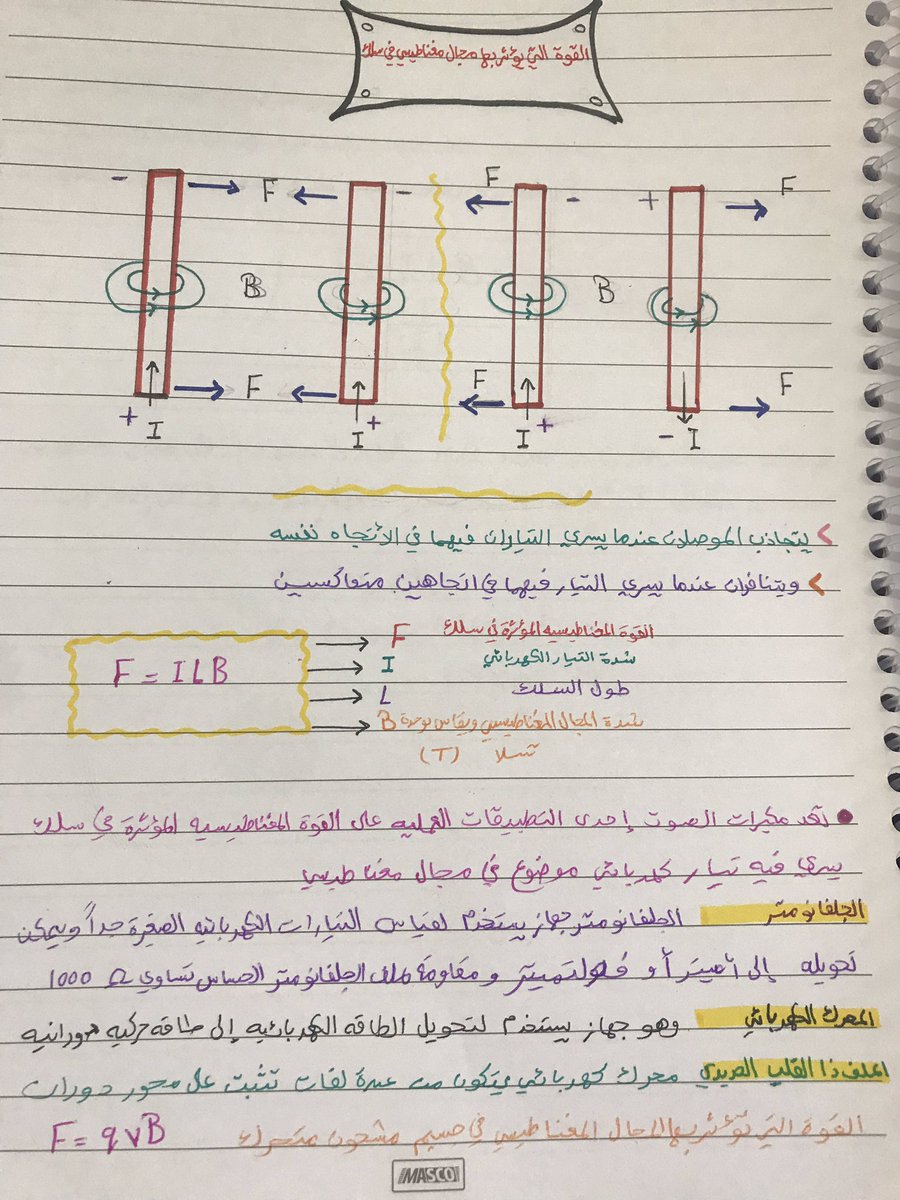 القوة التي يؤثر بها مجال مغناطيسي في سلك
- F - F - + F
B B
F F F
+ I I + I + - I
يتجاذب الموصلان عندما يسري التياران فيهما في الاتجاه نفسه
ويتنافران عندما يسري التيار فيهما في اتجاهين متعاكسين
F = ILB
F القوة المغناطيسيه المؤثرة في سلك
I شدة التيار الكهربائي
L طول السلك
B شدة المجال المغناطيسي ويقاس بوحدة
تسلا (T)
• تعد مكبرات الصوت إحدى التطبيقات العمليه على القوة المغناطيسيه المؤثرة في سلك
يسري فيه تيار كهربائي موضوع في مجال مغناطيسي
الجلفانومتر الجلفانومتر جهاز يستخدم لقياس التيارات الكهربائيه الصغيرة جداً ويمكن
تحويله إلى أميتر أو فولتميتر و مقاومة ملف الجلفانومتر الحساس تساوي 1000 Ω
المحرك الكهربائي وهو جهاز يستخدم لتحويل الطاقه الكهربائيه إلى طاقه حركيه دورانيه
الملف ذا القلب الحديدي محرك كهربائي يتكون من عدة لفات تثبت على محور دوران
القوة التي تؤثر بها المجال المغناطيسي في جسيم مشحون متحرك F = qvB
MASCO